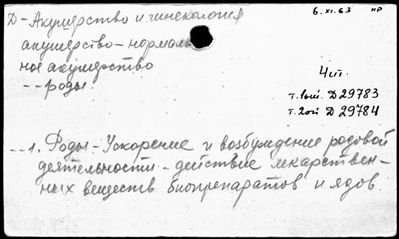 Д-Акушерство и гинекология
6.XI.63 нр
акушерство-нормаль
ное акушерство
--роды.
4шт.
т.1ой Д29783
т.2ой Д29784
--1. Роды-Ускорение и возбуждение родовой
деятельности-действие лекарствен-
ных веществ биопрепаратов и ядов.